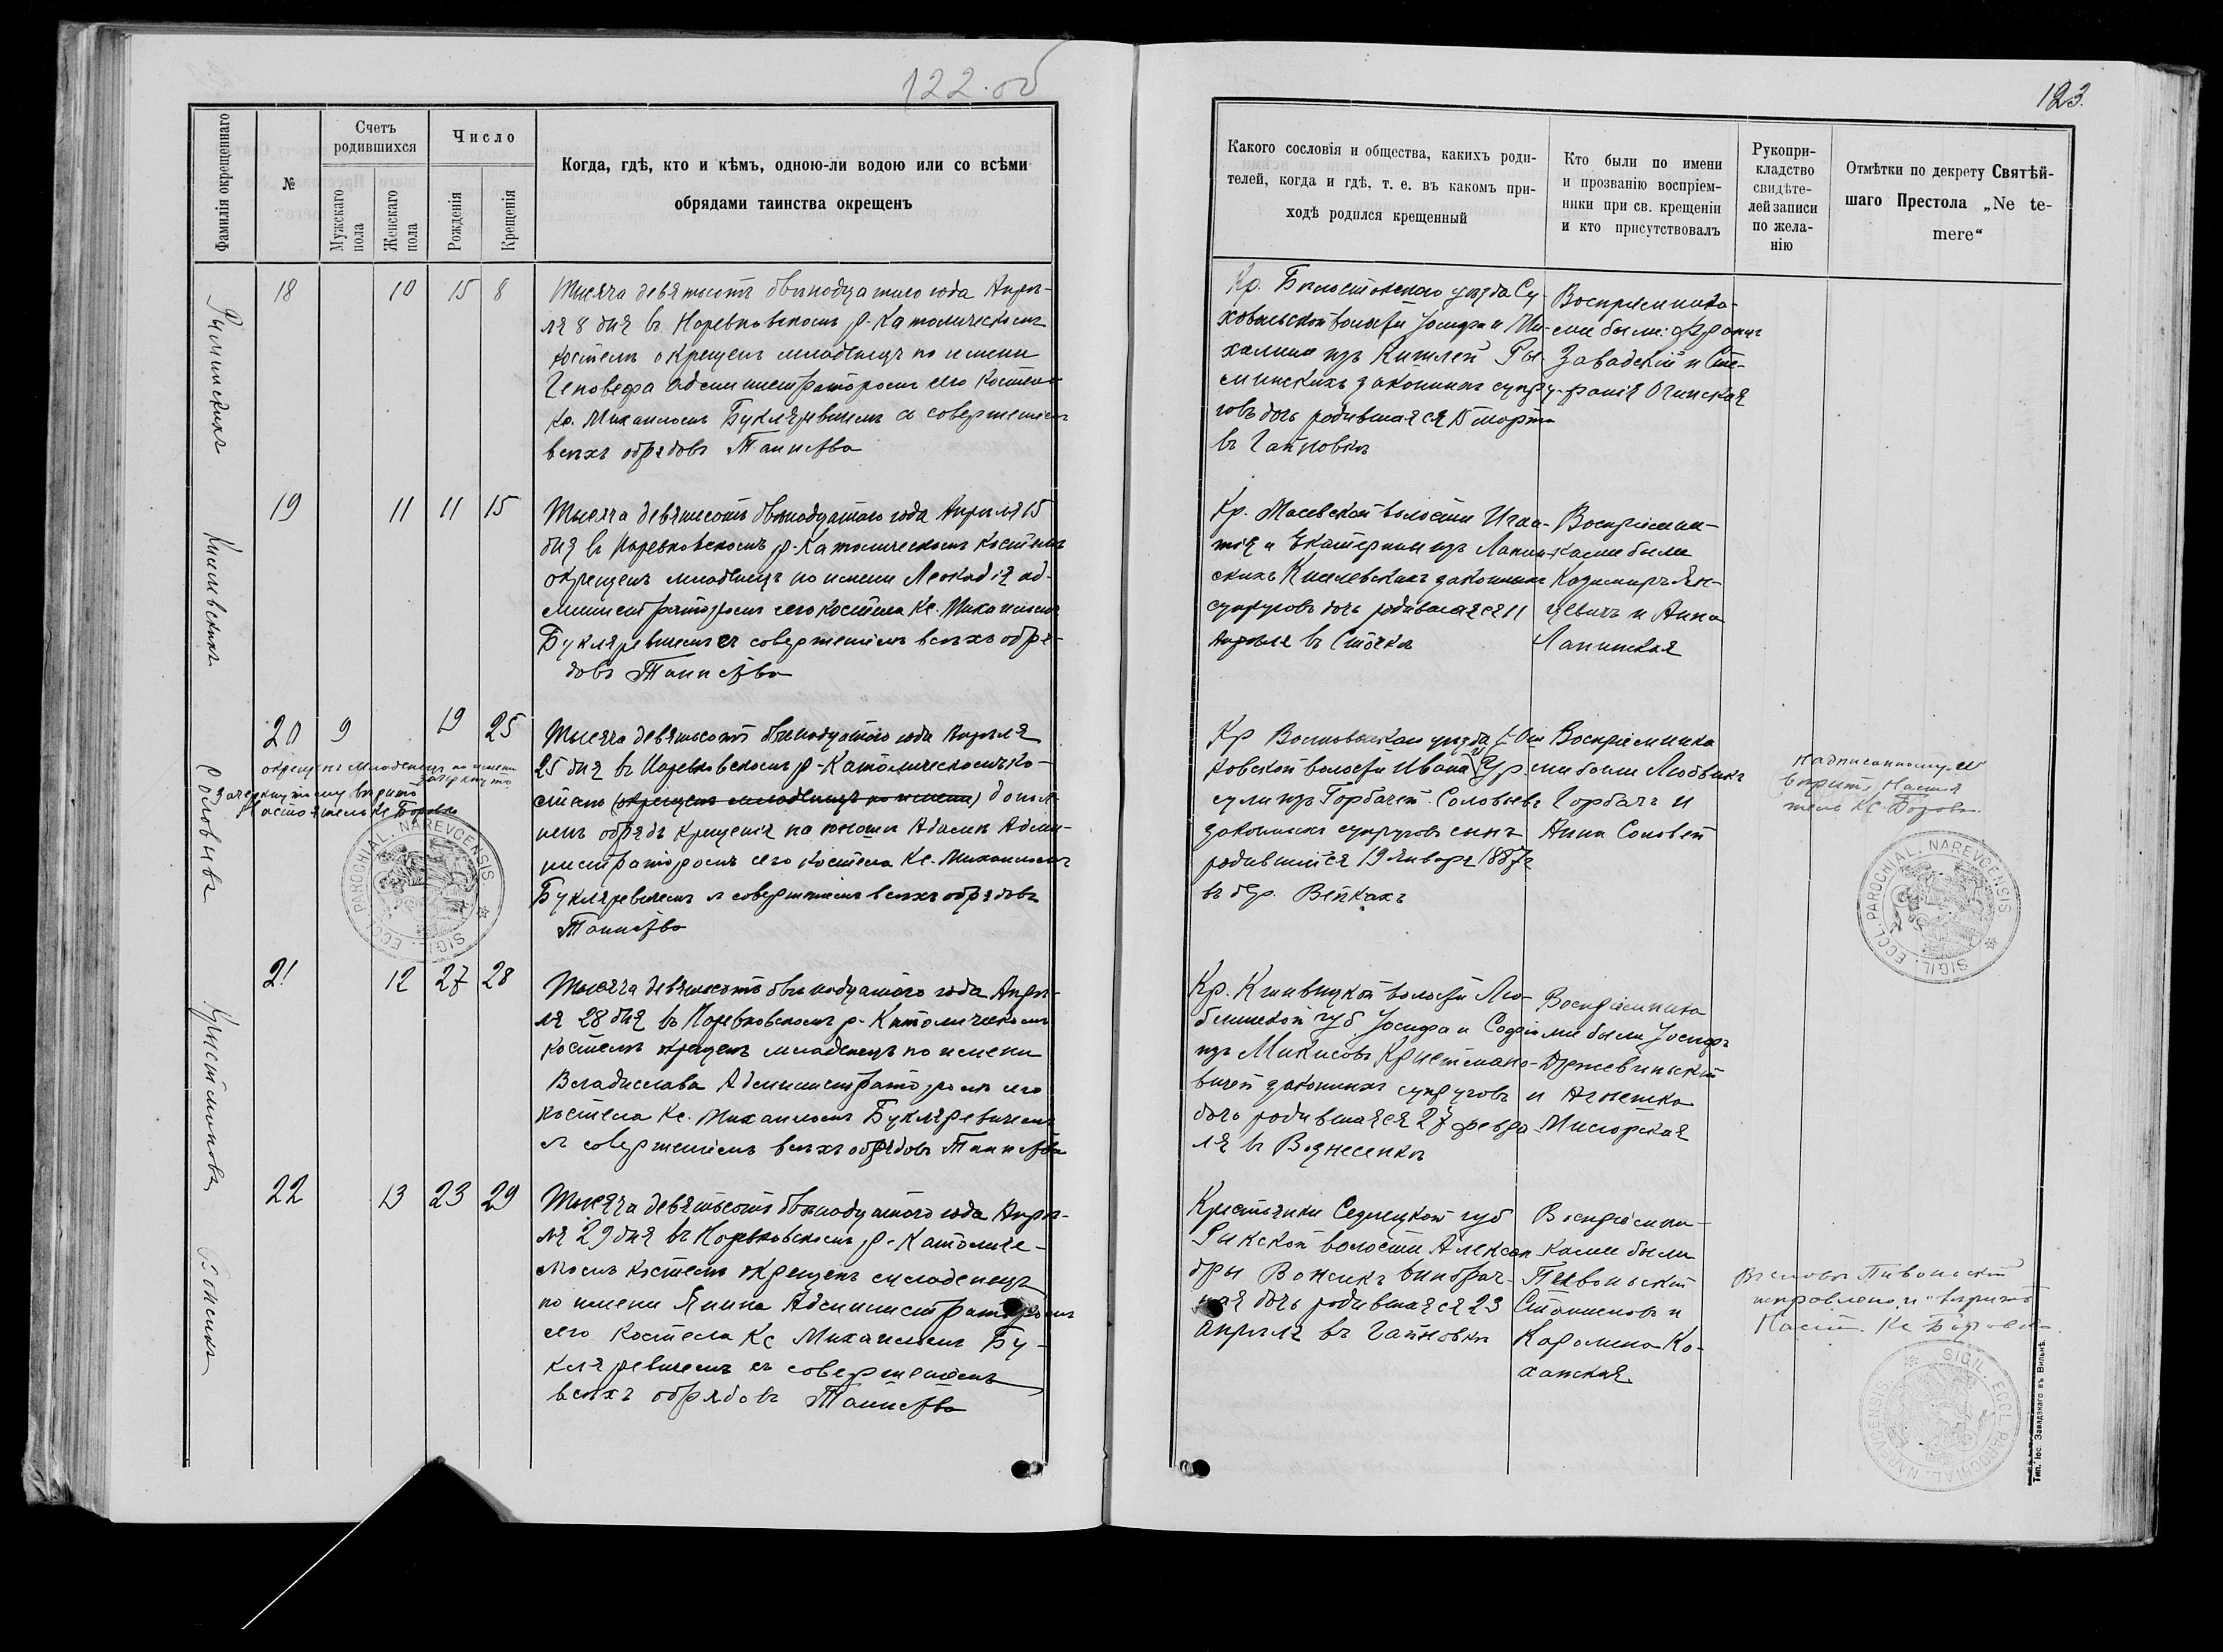 122.об
Фамилія окрещеннаго
№
Счетъ родившихся
Мужскаго пола
Женскаго пола
Число
Рожденія
Крещенія
Когда, гдѣ, кто и кѣмъ, одною-ли водою или со всѣми
обрядами таинства окрещенъ
18 10 15 8
Тысяча девятьсотъ двѣнадцатаго года Апрѣ-
ля 8 дня въ Наревковскомъ р-Католическомъ
костелѣ окрещенъ младенецъ по имени
Геновефа администраторомъ сего костела
Кс. Михаиломъ Букляревичемъ съ совершеніемъ
всѣхъ обрядовъ Таинства
19 11 11 15
Тысяча девятьсотъ двѣнадцатаго года Апрѣля 15
дня въ Наревковскомъ р-Католическомъ костелѣ
окрещенъ младенецъ по имени Леокадія ад-
министраторомъ сего костела Кс. Михаиломъ
Букляревичемъ съ совершеніемъ всѣхъ обря-
довъ Таинства
20 9 19 25
окрещенъ младенецъ по имени
зачеркнуто
зачеркнутому вѣрить
Настоятель Кс
Соловьевъ
Тысяча девятьсотъ двѣнадцатаго года Апрѣля
25 дня въ Наревковскомъ р-Католическомъ ко-
стелѣ (окрещенъ младенецъ по имени) допол-
ненъ обрядъ крещенія на юноши Адамъ Адми-
нистраторомъ сего костела Кс. Михаиломъ
Букляревичемъ съ совершеніемъ всѣхъ обрядовъ
Таинства
SIGIL. ECCL. PAROCHIAL. NAREVCENSIS
21 12 27 28
Тысяча девятьсотъ двѣнадцатаго года Апрѣ-
ля 28 дня въ Наревковскомъ р-Католическомъ
костелѣ окрещенъ младенецъ по имени
Владислава Администраторомъ сего
костела Кс. Михаиломъ Букляревичемъ
съ совершеніемъ всѣхъ обрядовъ Таинства
22 13 23 29
Тысяча девятьсотъ двѣнадцатаго года Апрѣ-
ля 29 дня въ Наревковскомъ р-Католиче-
скомъ костелѣ окрещенъ младенецъ
по имени Янина Администраторомъ
сего костела Кс Михаиломъ Бу-
кляревичемъ съ совершеніемъ
всѣхъ обрядовъ Таинства
123.
Какого сословія и общества, какихъ роди-
телей, когда и гдѣ, т. е. въ какомъ при-
ходѣ родился крещенный
Кто были по имени
и прозванію воспріем-
ники при св. крещеніи
и кто присутствовалъ
Рукопри-
кладство
свидѣте-
лей записи
по жела-
нію
Отмѣтки по декрету Святѣй-
шаго Престола „Ne te-
mere“
Кр. Бѣлостокскаго уѣзда Су-
ховольской волости Іосифа и Ми-
халины изъ Ры-
минскихъ законныхъ супру-
говъ дочь родившаяся 15 марта
въ Гайновкѣ
Воспріемника-
ми были: Францъ
Завадскій и Сте-
фанія Огинская
Кр. Масевской волости Игна-
тія и Екатерины изъ Лапин-
скихъ законныхъ
супруговъ дочь родившаяся 11
Апрѣля въ Сточкѣ
Воспріемни-
ками были
Казимиръ Ян-
цевичъ и Анна
Лапинская
Кр Волковыскаго уѣзда
ковской волости Ивана и Ур-
сули изъ Горбачей Соловьевъ
законныхъ супруговъ сынъ
родившійся 19 Января 1887 г
въ дер. Вейкахъ
Воспріемника
ми были Людвикъ
Горбачъ и
Анна Соловей
Надписанному „и“
вѣрить Настоя
тель Кс
SIGIL. ECCL. PAROCHIAL. NAREVCENSIS
волости Лю-
блинской губ Іосифа и Софіи
изъ Микисовъ Кристмано-
вичей законныхъ супруговъ
дочь родившаяся 27 февра
ля въ Вознесенкѣ
Воспріемника
ми были Іосифъ
и Агнешка
Кристьянки Седлецкой губ
Рыкской волости Алексан
дры Вожикъ внѣбрач-
ная дочь родившаяся 23
Апрѣля въ Гайновкѣ
Воспріемни-
ками были
Станиславъ и
Каролина Ко-
ханская.
исправлено „и“ вѣрить
Наст. Кс
SIGIL. ECCL. PAROCHIAL. NAREVCENSIS
Тип. Іос. Завадзкаго въ Вильнѣ.